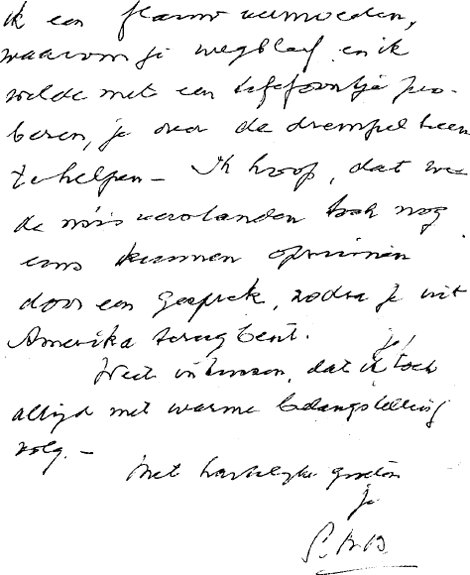 ik een flauw vermoeden,
waarom je wegbleef en ik
wilde met een telefoontje pro-
beren, je over de drempel heen
te helpen – Ik hoop, dat we
de misverstanden toch nog
eens kunnen opruimen
door een gesprek, zodra je uit
Amerika terug bent.
Weet intussen, dat ik je toch
altijd met warme belangstelling
volg. –
Met hartelijke groeten
je